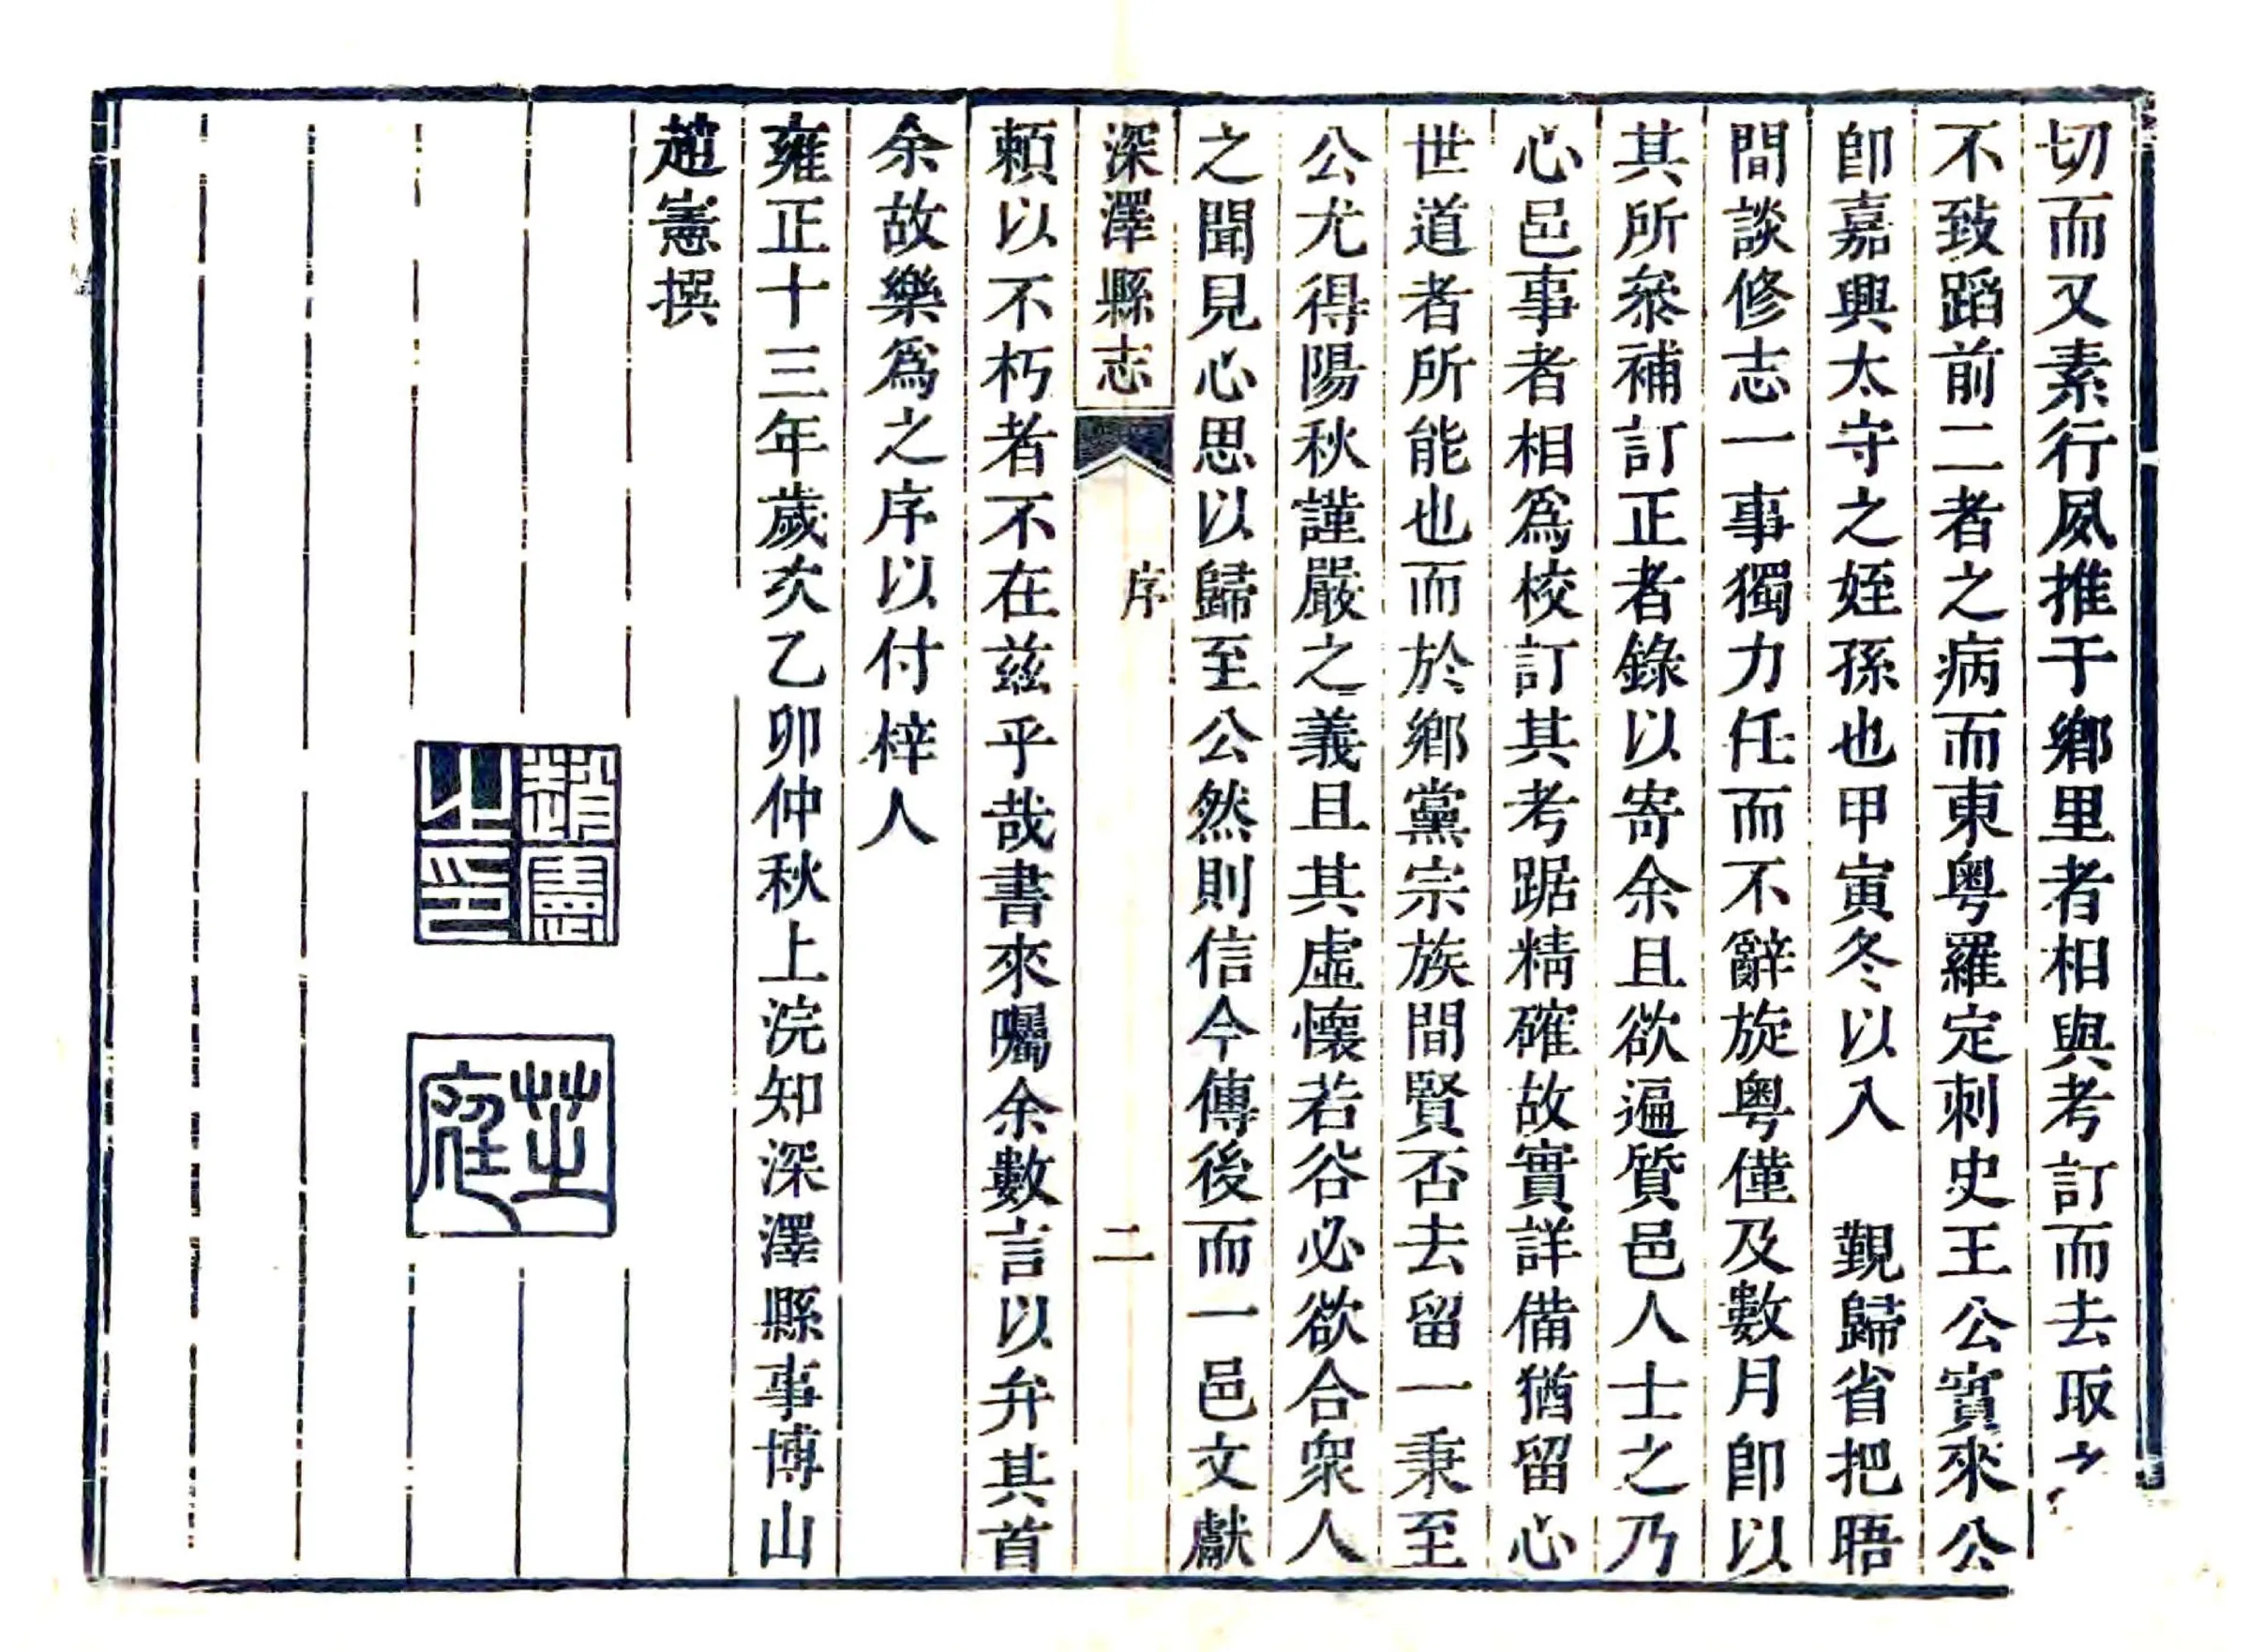 切而又素行夙推于鄉里者相與考訂而去取之
不致蹈前二者之病而東粵羅定刺史王公實來公
卽嘉興太守之姪孫也甲寅冬以入　覲歸省把晤
間談修志一事獨力任而不辭旋粵僅及數月卽以
其所叅補訂正者錄以寄余且欲遍質邑人士之乃
心邑事者相爲校訂其考踞精確故實詳備猶留心
世道者所能也而於鄉黨宗族間賢否去留一秉至
公尤得陽秋謹嚴之義且其虛懷若谷必欲合衆人
之聞見心思以歸至公然則信今傳後而一邑文獻
深澤縣志　序　二
賴以不朽者不在茲乎哉書來囑余數言以弁其首
余故樂爲之序以付梓人
雍正十三年歲次乙卯仲秋上浣知深澤縣事博山
趙憲撰
趙憲之印
芷庭